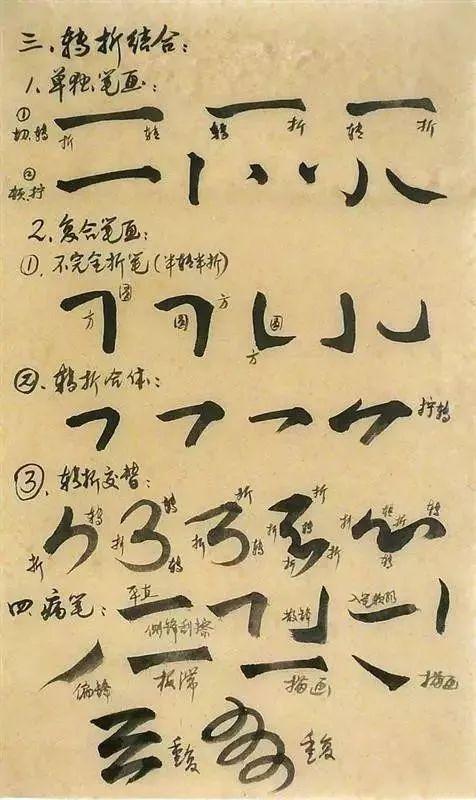 三、转折结合：
1.单独笔画：
① 切.转 折 转 转 折 转 折
② 顿.拧
2.复合笔画：
①.不完全折笔(半转半折)
方 圆 圆 方 方 圆
②.转折合体：
拧转
③.转折交替：
折 转 折 转 转 折 折 转 折 折 转 折 折 折 转 折 转 转
四.病笔：
平直 侧锋刮擦 散锋 入笔
偏锋 板滞 描画 描画
重复 重复